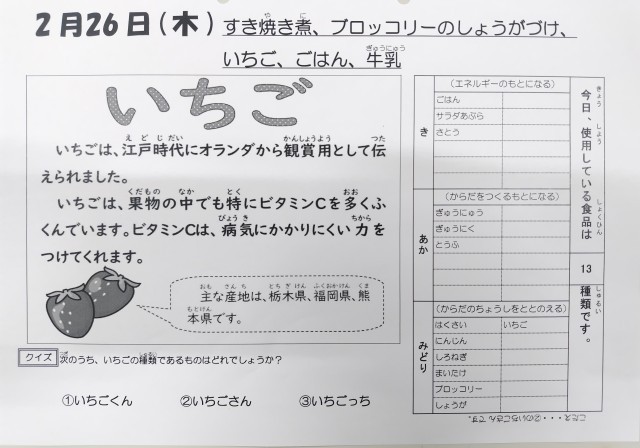 2月26日(木) すき焼き煮、ブロッコリーのしょうがづけ、
いちご、ごはん、牛乳
いちご
いちごは、江戸時代にオランダから観賞用として伝
えられました。
いちごは、果物の中でも特にビタミンCを多くふ
くんでいます。ビタミンCは、病気にかかりにくい力を
つけてくれます。
主な産地は、栃木県、福岡県、熊
本県です。
クイズ 次のうち、いちごの種類であるものはどれでしょうか？
①いちごくん ②いちごさん ③いちごっち
今日、使用している食品は
13
種類です。
き
(エネルギーのもとになる)
ごはん
サラダあぶら
さとう
あか
(からだをつくるもとになる)
ぎゅうにゅう
ぎゅうにく
とうふ
みどり
(からだのちょうしをととのえる)
はくさい いちご
にんじん
しろねぎ
まいたけ
ブロッコリー
しょうが
こたえ・・・②のいちごさんです。